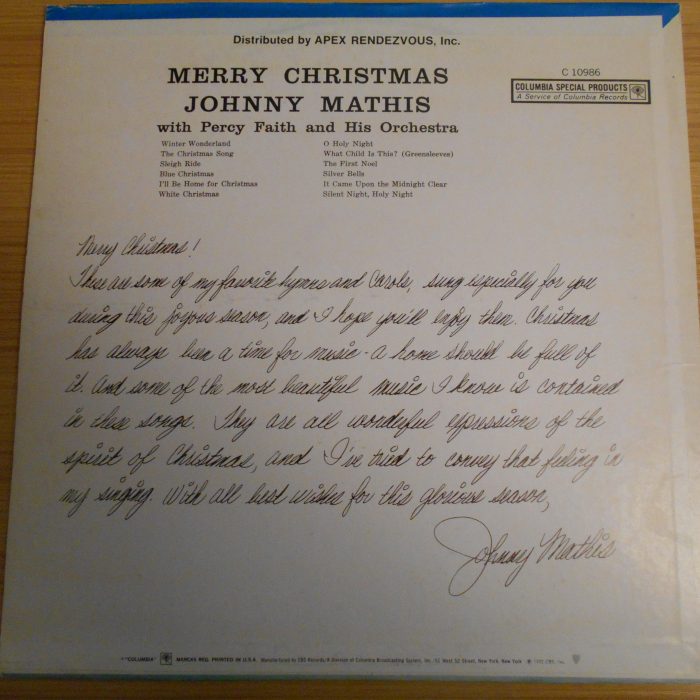 Distributed by APEX RENDEZVOUS, Inc.
C 10986
MERRY CHRISTMAS
COLUMBIA SPECIAL PRODUCTS
A Service of Columbia Records
JOHNNY MATHIS
with Percy Faith and His Orchestra
Winter Wonderland
The Christmas Song
Sleigh Ride
Blue Christmas
I'll Be Home for Christmas
White Christmas
O Holy Night
What Child Is This? (Greensleeves)
The First Noel
Silver Bells
It Came Upon the Midnight Clear
Silent Night, Holy Night
Merry Christmas!
These are some of my favorite hymns and Carols, sung especially for you
during this joyous season, and I hope you'll enjoy them. Christmas
has always been a time for music - a home should be full of
it. And some of the most beautiful music I know is contained
in these songs. They are all wonderful expressions of the
spirit of Christmas, and I've tried to convey that feeling in
my singing. With all best wishes for this glorious season,
Johnny Mathis
"COLUMBIA" MARCAS REG. PRINTED IN U.S.A. Manufactured by CBS Records/A Division of Columbia Broadcasting System, Inc./51 West 52 Street, New York, New York